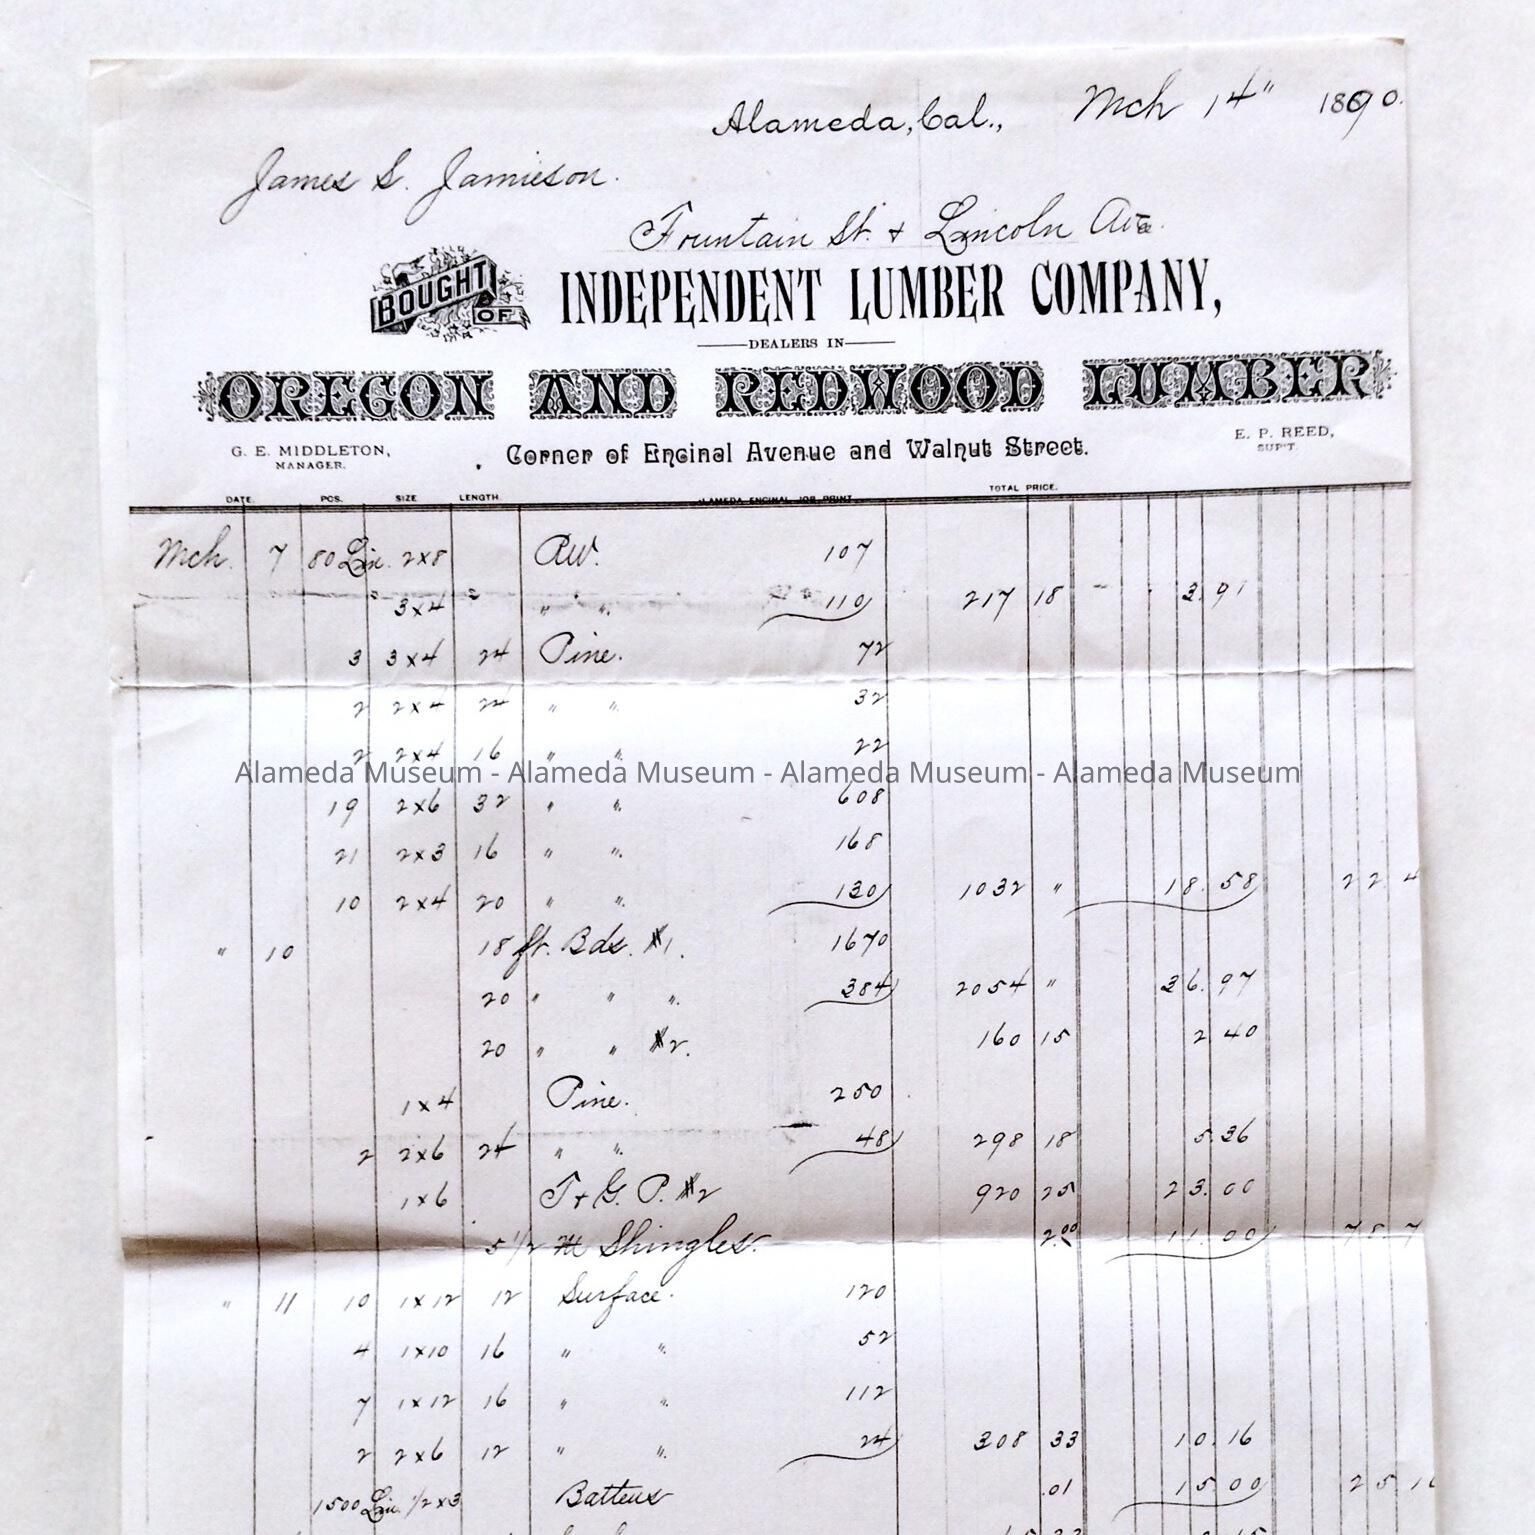 Alameda, Cal., Mch 14" 1890.
James S. Jamieson.
Fountain St. + Lincoln Ave.
BOUGHT OF INDEPENDENT LUMBER COMPANY,
DEALERS IN
OREGON AND REDWOOD LUMBER
G. E. MIDDLETON, MANAGER. Corner of Encinal Avenue and Walnut Street. E. P. REED, SUP'T.
DATE. PCS. SIZE LENGTH. ALAMEDA ENCINAL JOB PRINT TOTAL PRICE.
Mch. 7 80 Lin. 2x8 RW. 107
" 3x4 " " " 110 217 18 3.91
3 3x4 24 Pine. 72
2 2x4 24 " " 32
2 2x4 16 " " 22
Alameda Museum - Alameda Museum - Alameda Museum - Alameda Museum
19 2x6 32 " " 608
21 2x3 16 " " 168
10 2x4 20 " " 130 1032 " 18.58 22 4
" 10 18 ft. Bds. #1. 1670
20 " " " 384 2054 " 36.97
20 " " #2. 160 15 2 40
1x4 Pine. 250
2 2x6 24 " " 48 298 18 5.36
1x6 T + G. P. #2 920 25 23.00
5 1/2 M Shingles. 2.00 11.00 78 7
" 11 10 1x12 12 Surface. 120
4 1x10 16 " " 52
7 1x12 16 " " 112
2 2x6 12 " " 24 308 33 10.16
1500 Lin. 1/2x3 Battens .01 15.00 25 16